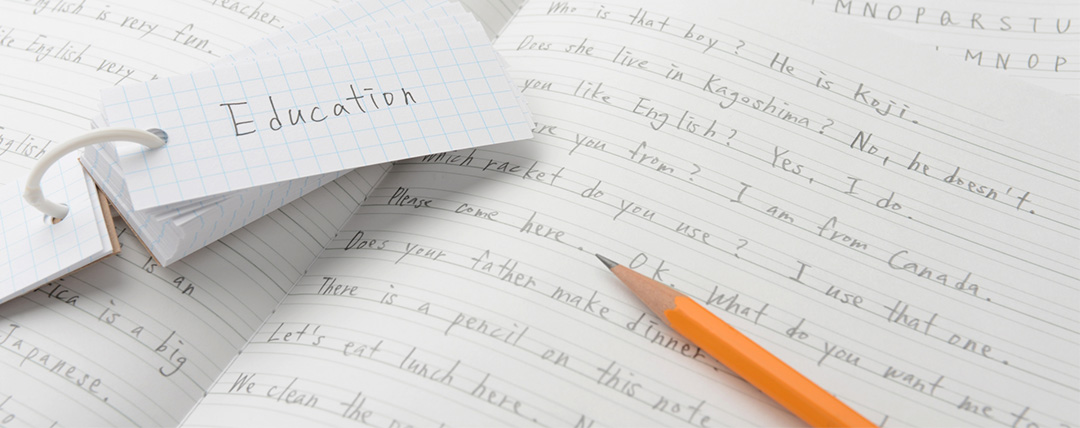 teacher.
English is very fun.
English very
English
is an
is a big
Japanese.
to
Education
Who is that boy? He is Koji.
Does she live in Kagoshima? No, he doesn't.
you like English? Yes, I do.
you from? I am from Canada.
Which racket do you use? I use that one.
Please come here. OK. What do you want me to
Does your father make dinner.
There is a pencil on this note
Let's eat lunch here.
We clean the
M N O P Q R S T U
M N O P